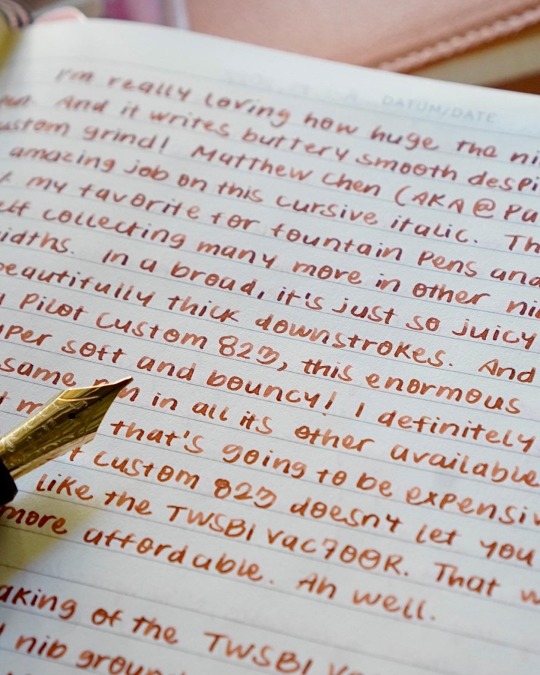 DATUM/DATE
I'm really loving how huge the
And it writes buttery smooth
custom grind! Matthew Chen (AKA @
amazing job on this cursive italic.
my favorite for fountain pens and
collecting many more in other
widths. In a broad, it's just so juicy
beautifully thick downstrokes. And
Pilot Custom 823, this enormous
super soft and bouncy! I definitely
same in all its other available
that's going to be expensive
Custom 823 doesn't let you
like the TWSBI Vac700R. That
more affordable. Ah well.
of the TWSBI
nib